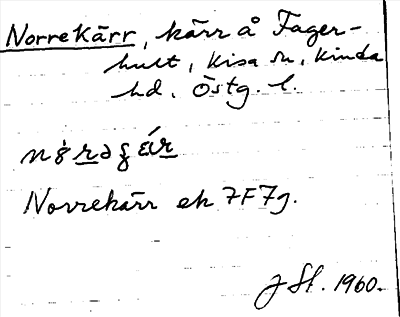 Norrekärr, kärr å Fager-
hult, Kisa sn, Kinda
hd. Östg. l.
Norrekärr ek 7F7g.
J Sl. 1960.